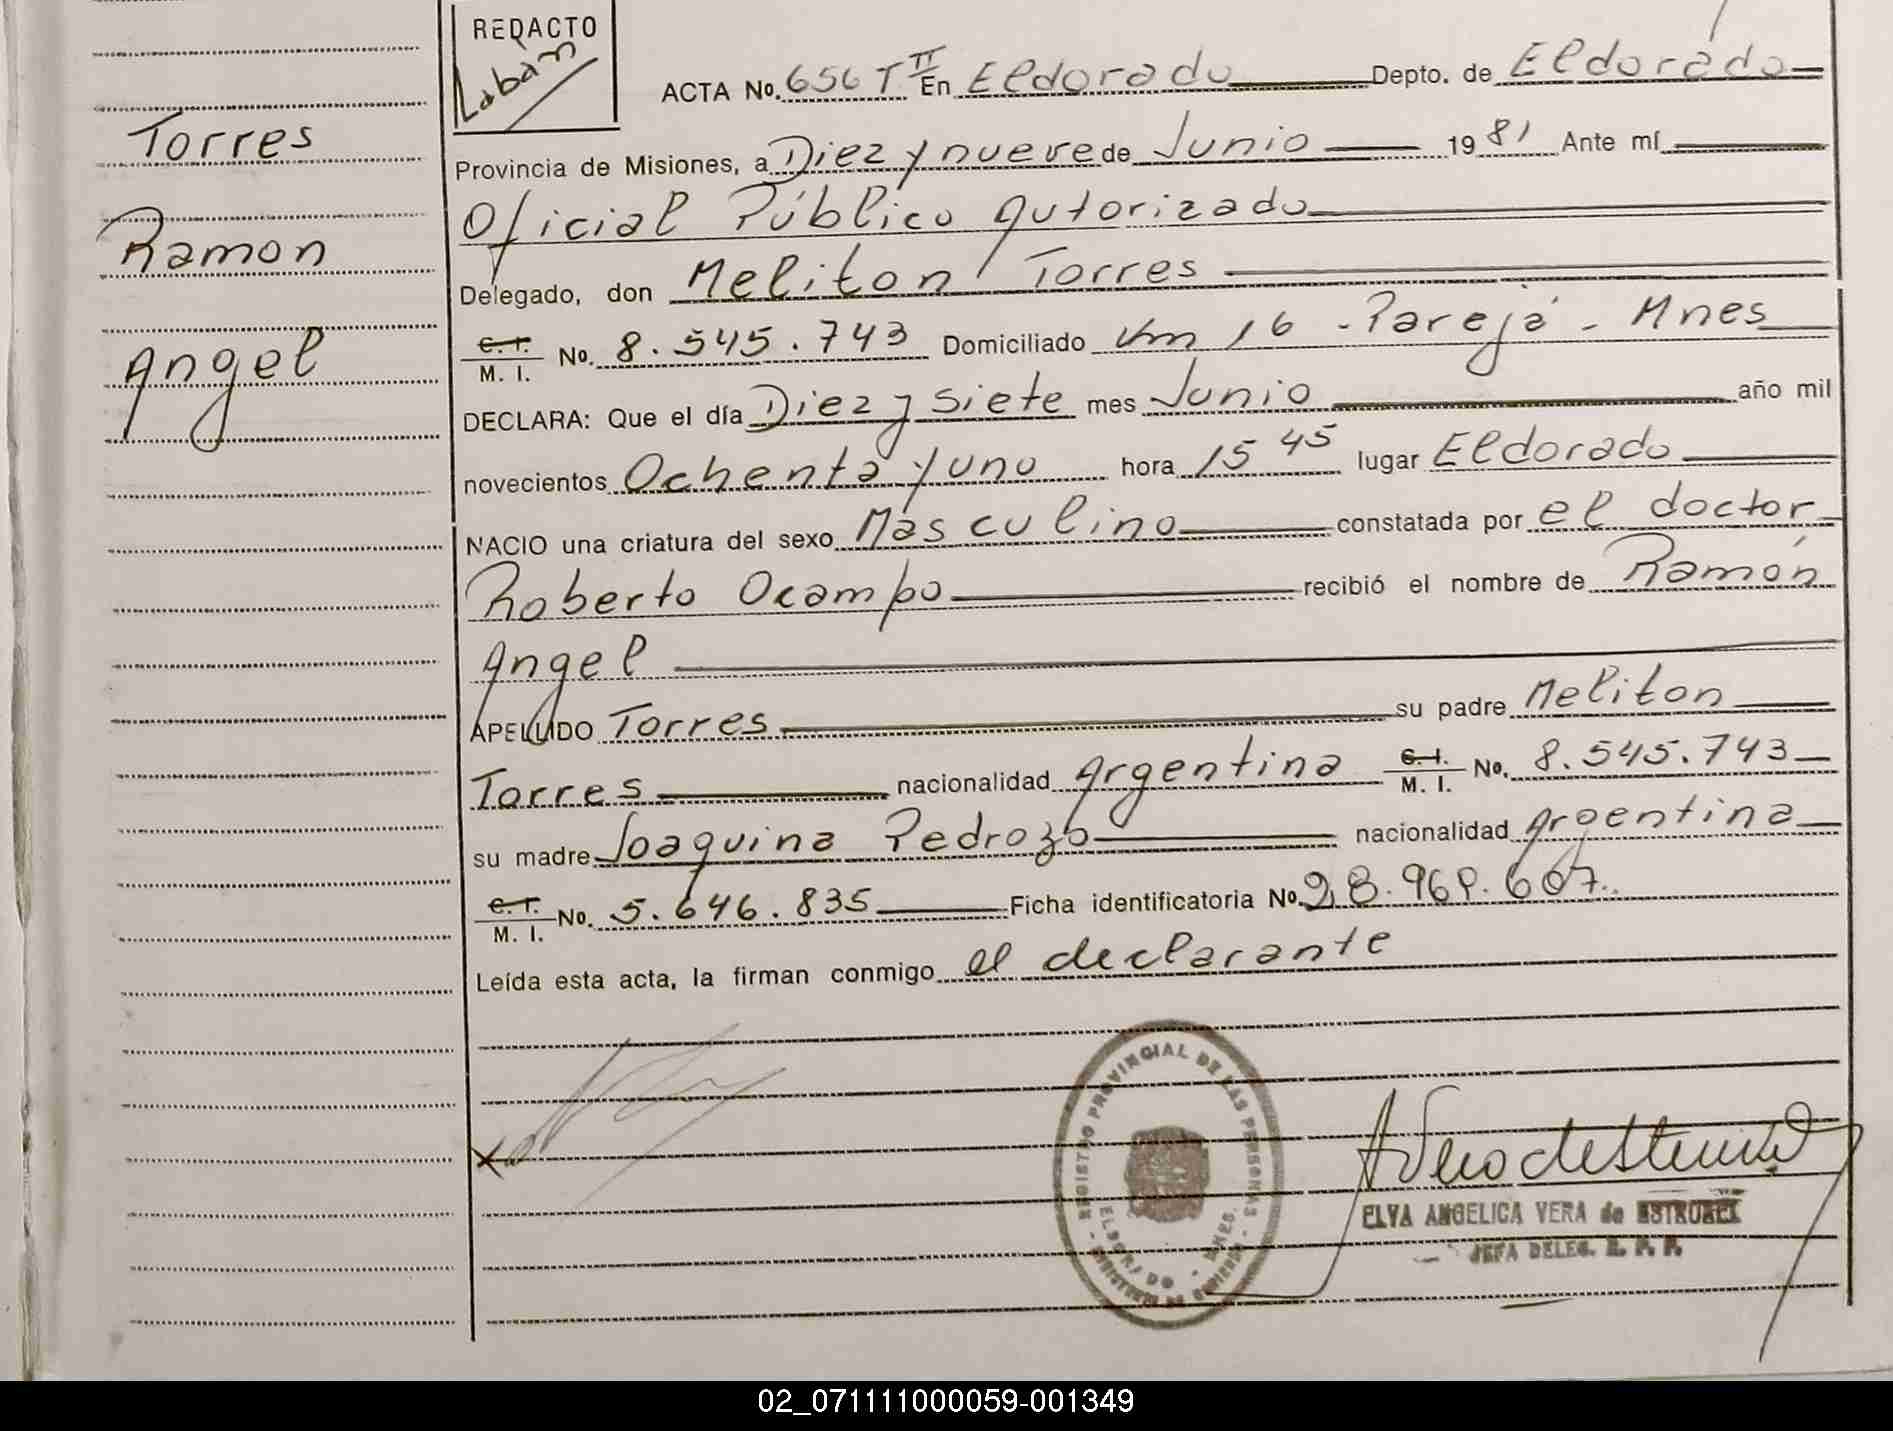 REDACTO
Labán
ACTA No. 656 T II En Eldorado Depto. de Eldorado
Torres
Provincia de Misiones, a Diez y nueve de Junio 1981 Ante mí
Oficial Público Autorizado
Ramon
Delegado, don Meliton Torres
C. I. / M. I. No. 8.545.743 Domiciliado Km 16 - Pareja - Mnes
Angel
DECLARA: Que el día Diez y siete mes Junio año mil
novecientos Ochenta y uno hora 15 45 lugar Eldorado
NACIO una criatura del sexo Masculino constatada por el doctor
Roberto Ocampo recibió el nombre de Ramón
Angel
APELLIDO Torres su padre Meliton
Torres nacionalidad Argentina C. I. / M. I. No. 8.545.743
su madre Joaquina Pedrozo nacionalidad Argentina
C. I. / M. I. No. 5.646.835 Ficha identificatoria No. 28.969.607
Leída esta acta, la firman conmigo el declarante
REGISTRO PROVINCIAL DE LAS PERSONAS
ELDORADO - MNES.
MINISTERIO DE GOBIERNO
ELVA ANGELICA VERA de
JEFA DELEG. R. P. P.
02_071111000059-001349